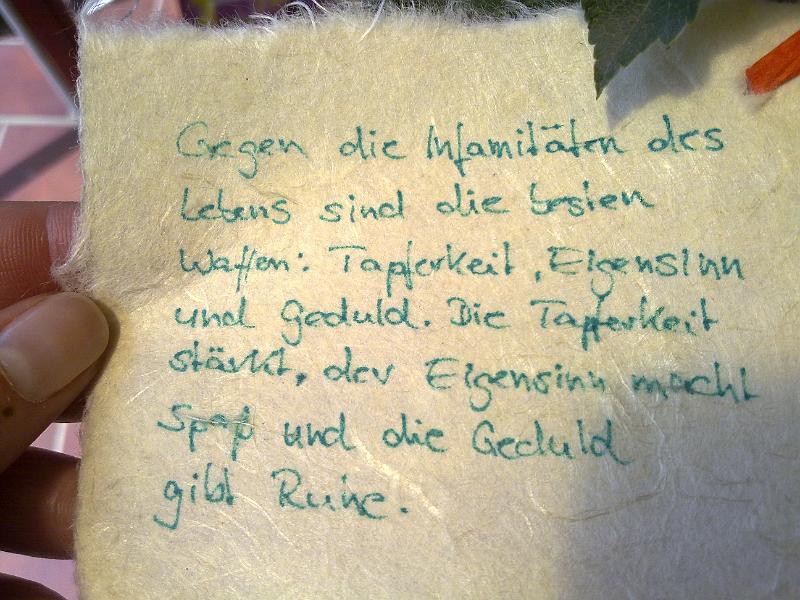 Gegen die Infamitäten des
Lebens sind die besten
Waffen: Tapferkeit, Eigensinn
und Geduld. Die Tapferkeit
stärkt, der Eigensinn macht
Spaß und die Geduld
gibt Ruhe.